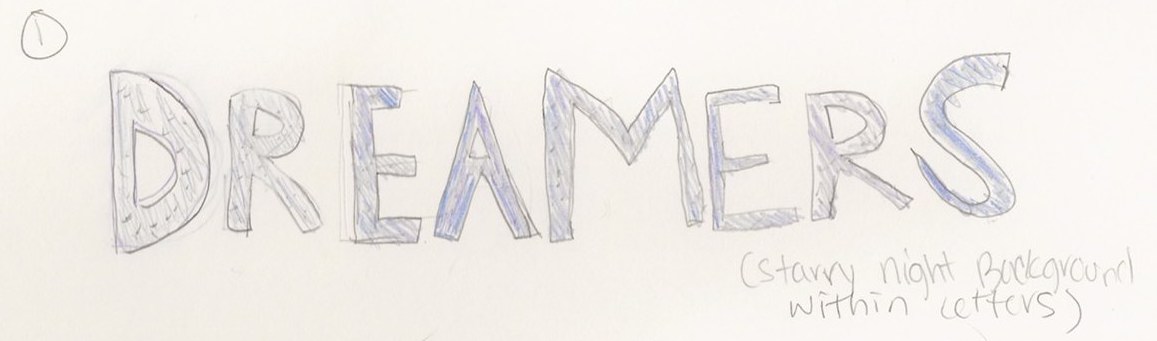 1
DREAMERS
(starry night Background
within letters)